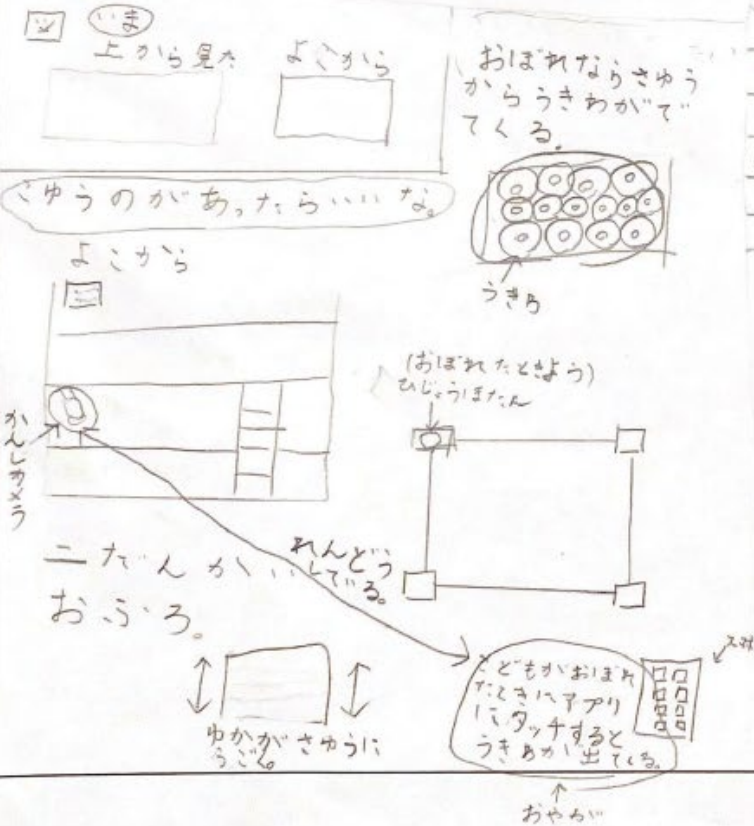 いま
上から見た
よこから
おぼれならさゆう
からうきわがで
てくる。
こゆうのがあったらいいな。
よこから
うきわ
かんしカメラ
(おぼれたときよう)
ひじょうぼたん
二だんかい
おふろ。
れんどう
してる。
ゆかがさゆうに
うごく
こどもがおぼれ
たときにアプリ
にタッチすると
うきわが出てくる。
おやが